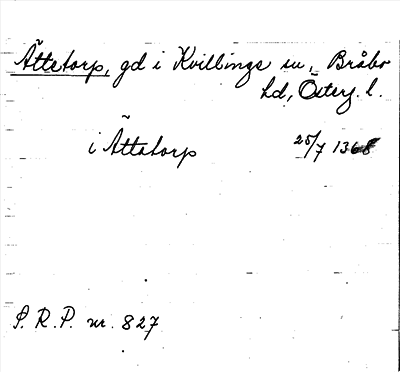 Ättetorp, gd i Kvillinge sn, Bråbo
hd, Österg. l.
i Ättatorp 25/7 1368
S. R. P. nr. 827